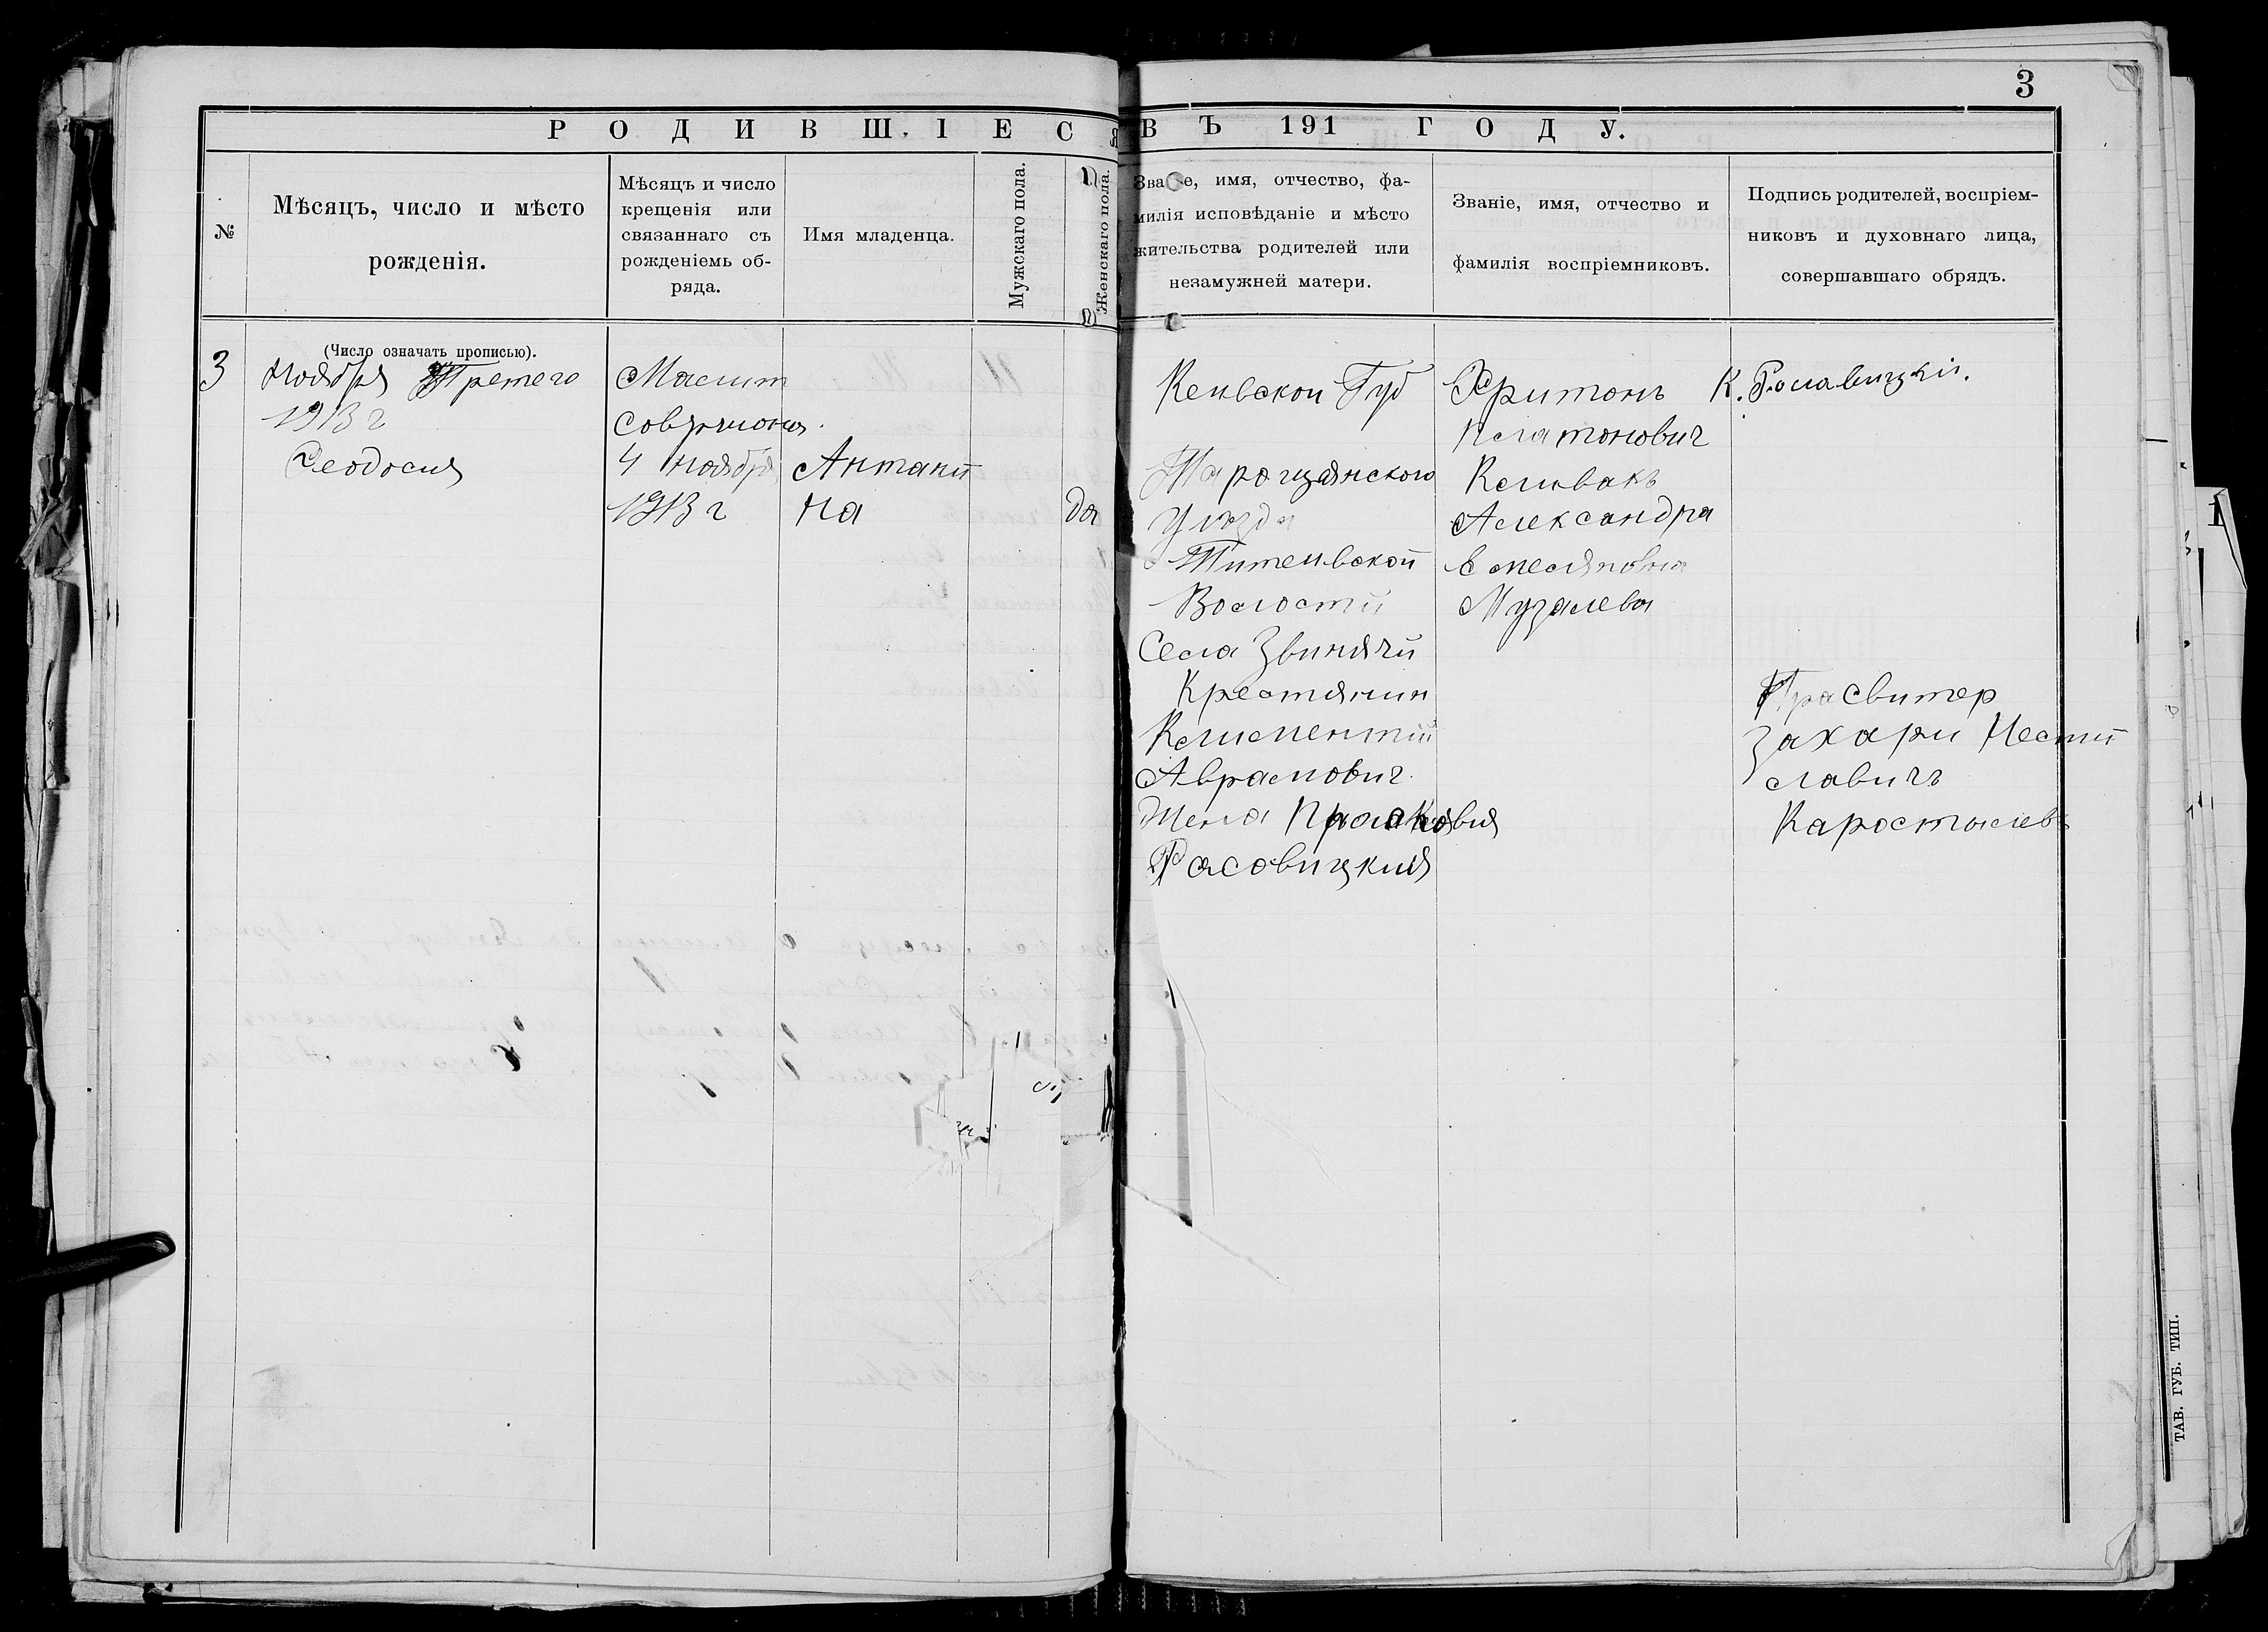 3
РОДИВШІЕСЯ ВЪ 191 ГОДУ.
№
Мѣсяцъ, число и мѣсто
рожденія.
Мѣсяцъ и число
крещенія или
связаннаго съ
рожденіемъ об-
ряда.
Имя младенца.
Мужскаго пола.
Женскаго пола.
Зва е, имя, отчество, фа-
милія исповѣданіе и мѣсто
жительства родителей или
незамужней матери.
Званіе, имя, отчество и
фамилія воспріемниковъ.
Подпись родителей, воспріем-
никовъ и духовнаго лица,
совершавшаго обрядъ.
(Число означать прописью).
3
Ноября Третего
1913 г
Феодосия
4 ноября
1913 г
на
да
Киевской Губ
Таращанского
Уезда
Волости
Села Звинячи
Крестянин
Климентий
Аврамович
Жена
Расовицкия
Харитонъ
Платонович
Александра
Музалева
К.
Прасвитер
Захари
славичъ
Каростылевъ
ТАВ. ГУБ. ТИП.